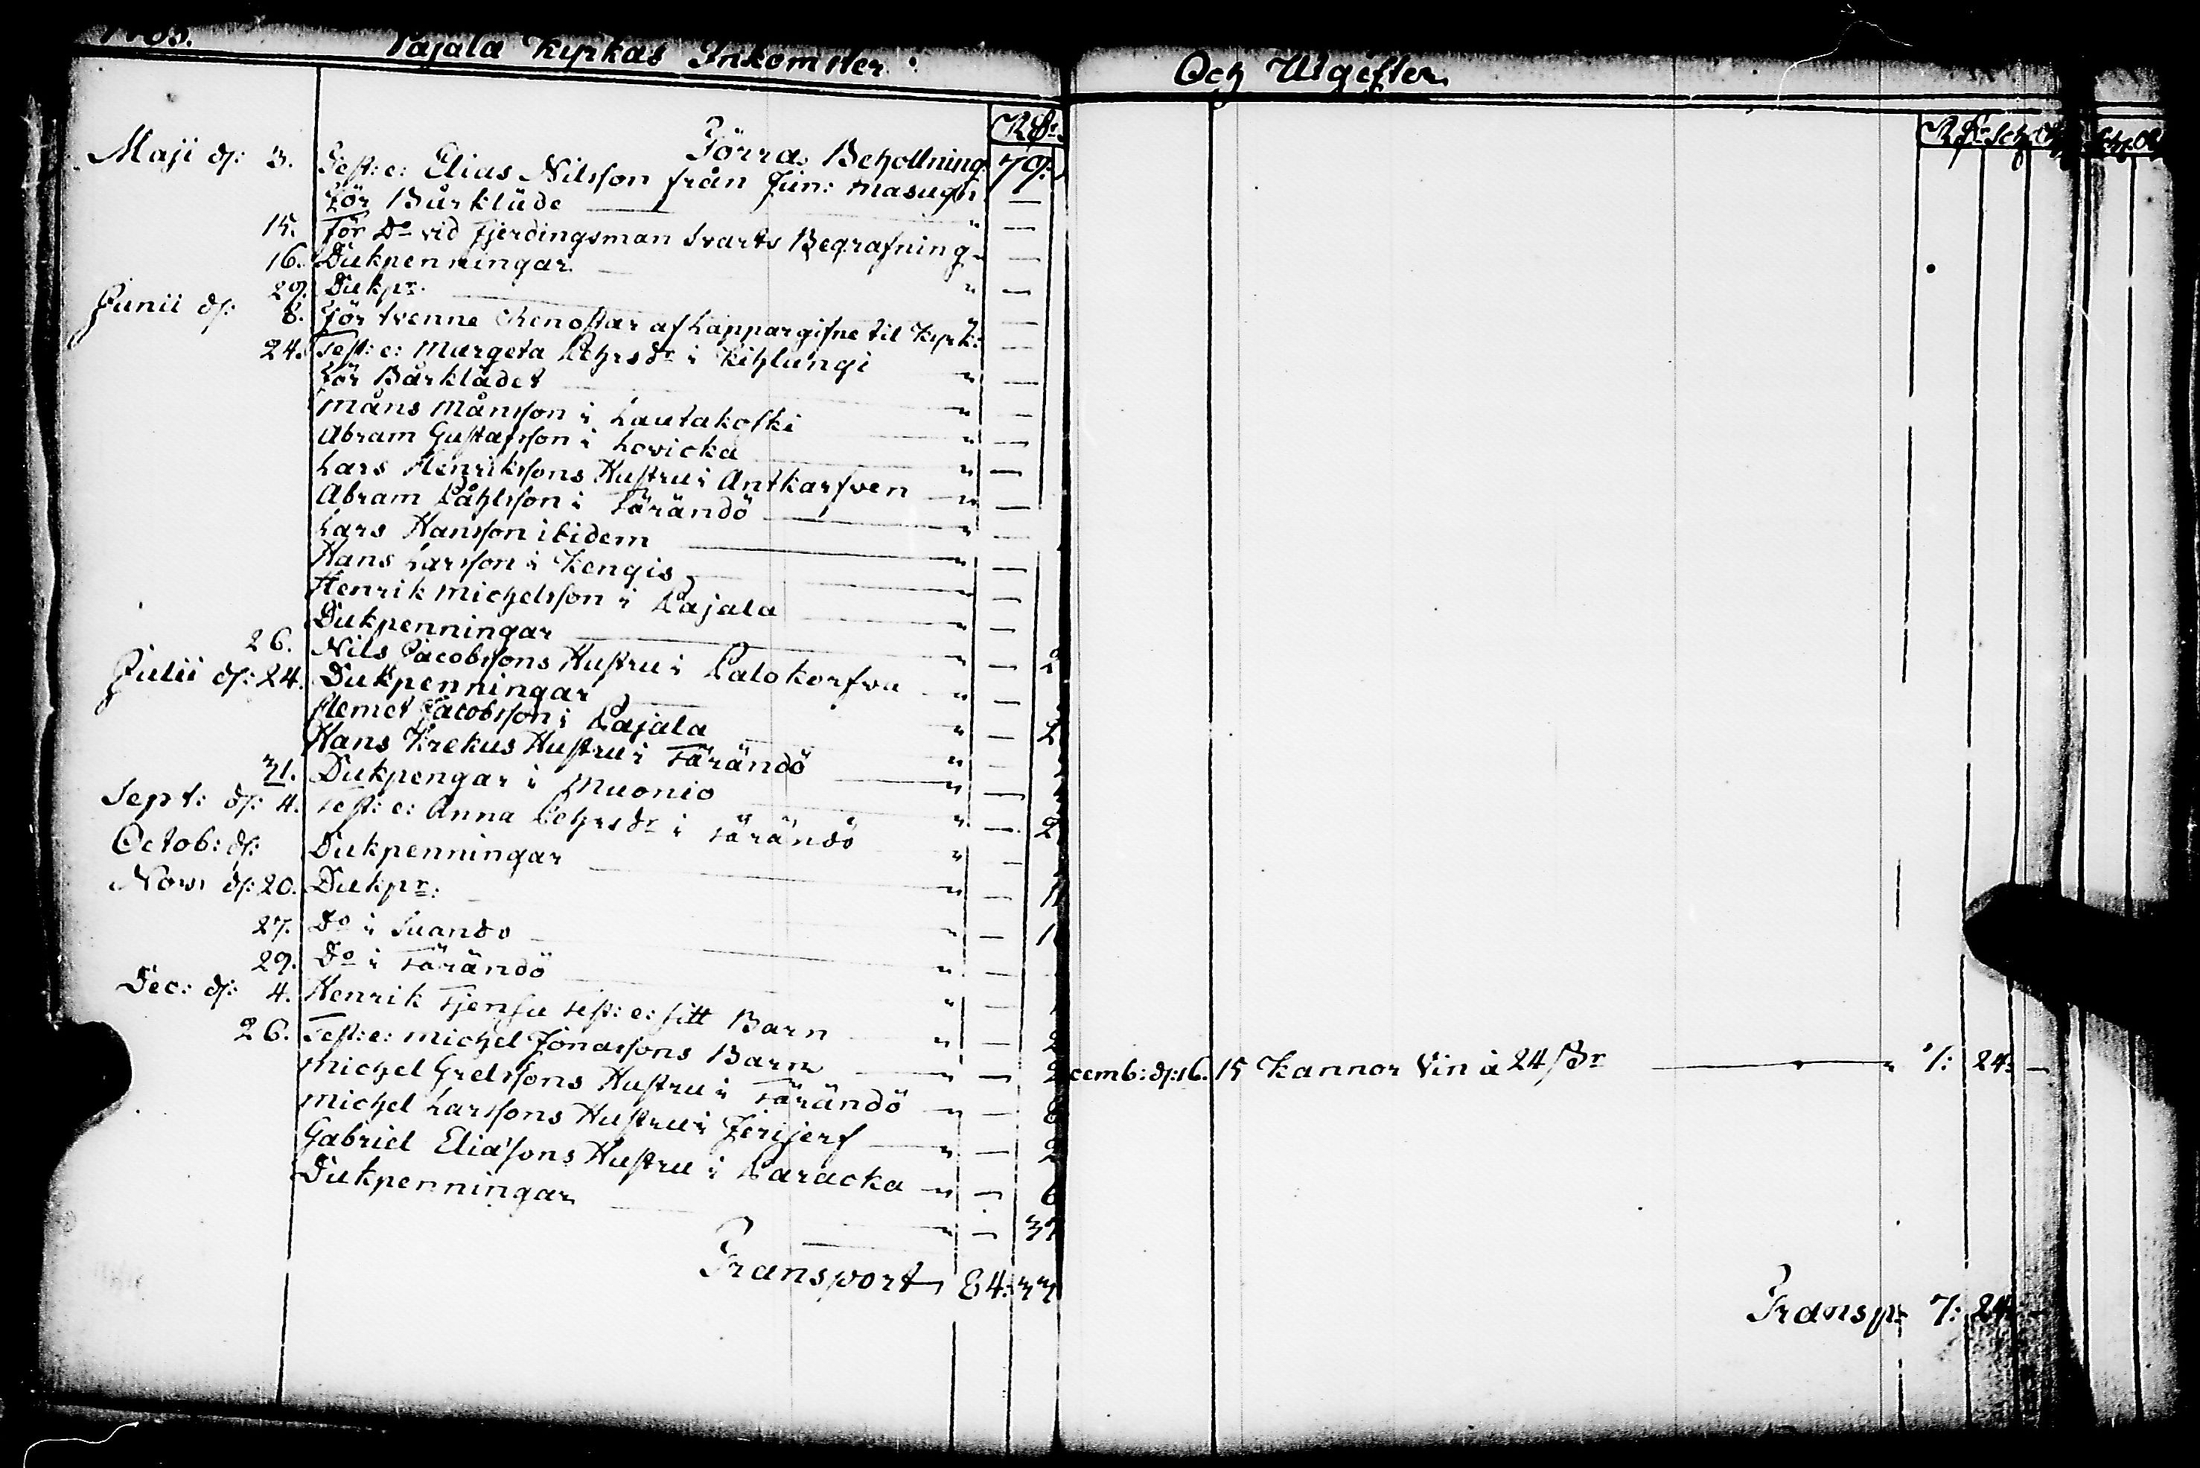 Pajala Kyrkas Inkomster
Förra Behollning 79:
Maji d: 3. Test: e: Elias Nilsson från Jun: masugn
För Bårkläde
15. För Do vid Fjerdingsman Svarts Begrafning
16. Dukpenningar
29. Dukpr.
Junii d: 8. För tvenne Renostar af Lappar gifne til Kyrk:
24. Test: e: Margeta Pehrsdr i Kihlangi
för Bårklädet
Måns Månsson i Lautakoski
Abram Gustafsson i Lovicka
Lars Henrikssons Hustru i Antkarfven
Abram Påhlsson i Tärändö
Lars Hansson ibidem
Hans Larsson i Kengis
Henrik Michelsson i Pajala
Dukpenningar
26. Nils Jacobssons Hustru i Palokorfva 2
Julii d: 24. Dukpenningar
Hemet Jacobsson i Pajala 2
Hans Krekus Hustru i Tärändö
31. Dukpengar i Muonio
Sept: d: 4. Test: e: Anna Pehrsdr i Tärändö 2
Octob: d: Dukpenningar
Nov: d: 20. Dukpr: 11
27. Do i Suando 1
29. Do i Tärändö
Dec: d: 4. Henrik Tjensu test: e: sitt Barn 2
26. Test: e: Michel Jonassons Barn 2
Michel Grelssons Hustru i Tärändö 8
Michel Larssons Hustru i Jerijerf 2
Gabriel Eliassons Hustru i Paracka 6
Dukpenningar 37
Transport 84: 33
Och Utgifter
Rdr Sch
cemb: d: 16. 15 Kannor Vin à 24 sr 7: 24: —
Transp: 7: 24: —